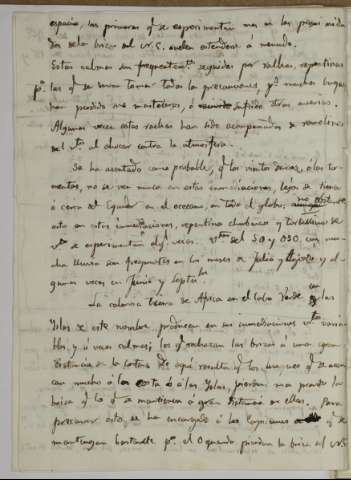 espacio, las primeras qe se experimentan mas en las proximida
des de la brisa del N.E. suelen estenderse á menudo.
Estas calmas son frequentemte. seguidas por rafas, repentinas
pa. las qe se deben tomar todas las precauciones, ps muchos buques
han perdido sus masteleros, ó sufrido otras averias.
Algunas veces estas rachas han sido acompañadas de remolinos
del vto. al chocar contra la atmosfera.
Se ha asentado como probable, qe los vientos duros, ó las tor-
mentas, no se ven nunca en estas inmediaciones, lejos de tierra
ó cerca del Equador en el occeano, en todo el globo; no obstante
esto en estas inmediaciones, repentinos chubascos y torbellinos de
vto. se experimentan algs. veces. Vtos. del SO y OSO, con mu-
cha lluvia son frequentes en los meses de Julio y Agosto y al-
gunas veces en Junio y Septbe.
La colonia tierra de Africa en el Cabo Verde con las
Yslas de este nombre, producen en sus inmediaciones vtos. varia
bles, y á veces calmas; los qe rechazan las brisas á una gran
distancia de la costa: de aqui resulta qe los buques qe se acer-
can mucho á la costa ó á las Yslas, pierden mas pronto la
brisa qe los qe se mantienen á gran distancia de ellas. Para
precaver esto, se ha encargado á los Capitanes qe se
mantengan bastante pa. el O quando pierdan la brisa del NE